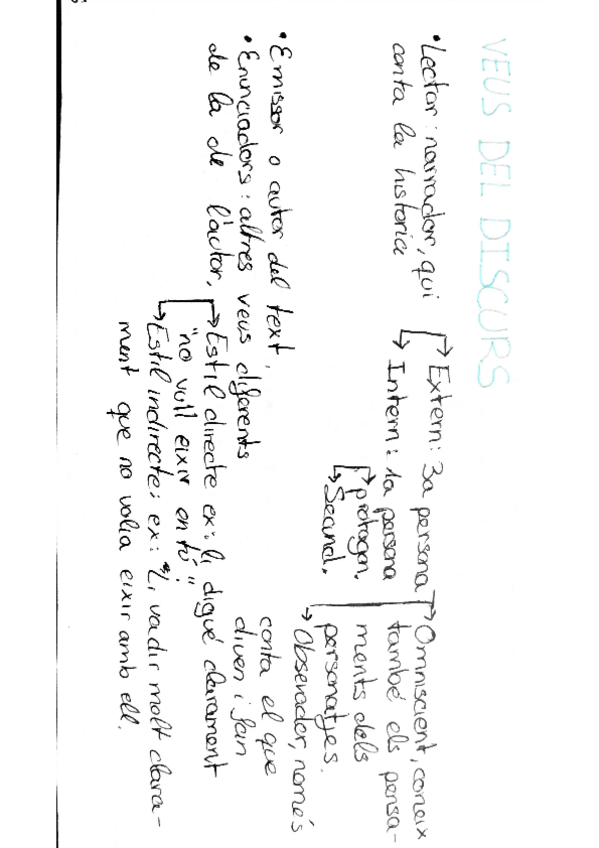 VEUS DEL DISCURS
• Lector: narrador, qui
conta la historia
Extern: 3a persona
Intern: 1a persona
protagon.
Secund.
Omniscient, coneix
també els pensa-
ments dels
personatges.
Observador, només
conta el que
diuen i fan
• Emissor o autor del text.
• Enunciadors: altres veus diferents
de la de l'autor.
Estil directe ex: li digué clarament
"no vull eixir on tú"
Estil indirecte: ex: "Li va dir molt clara-
ment que no volia eixir amb ell.